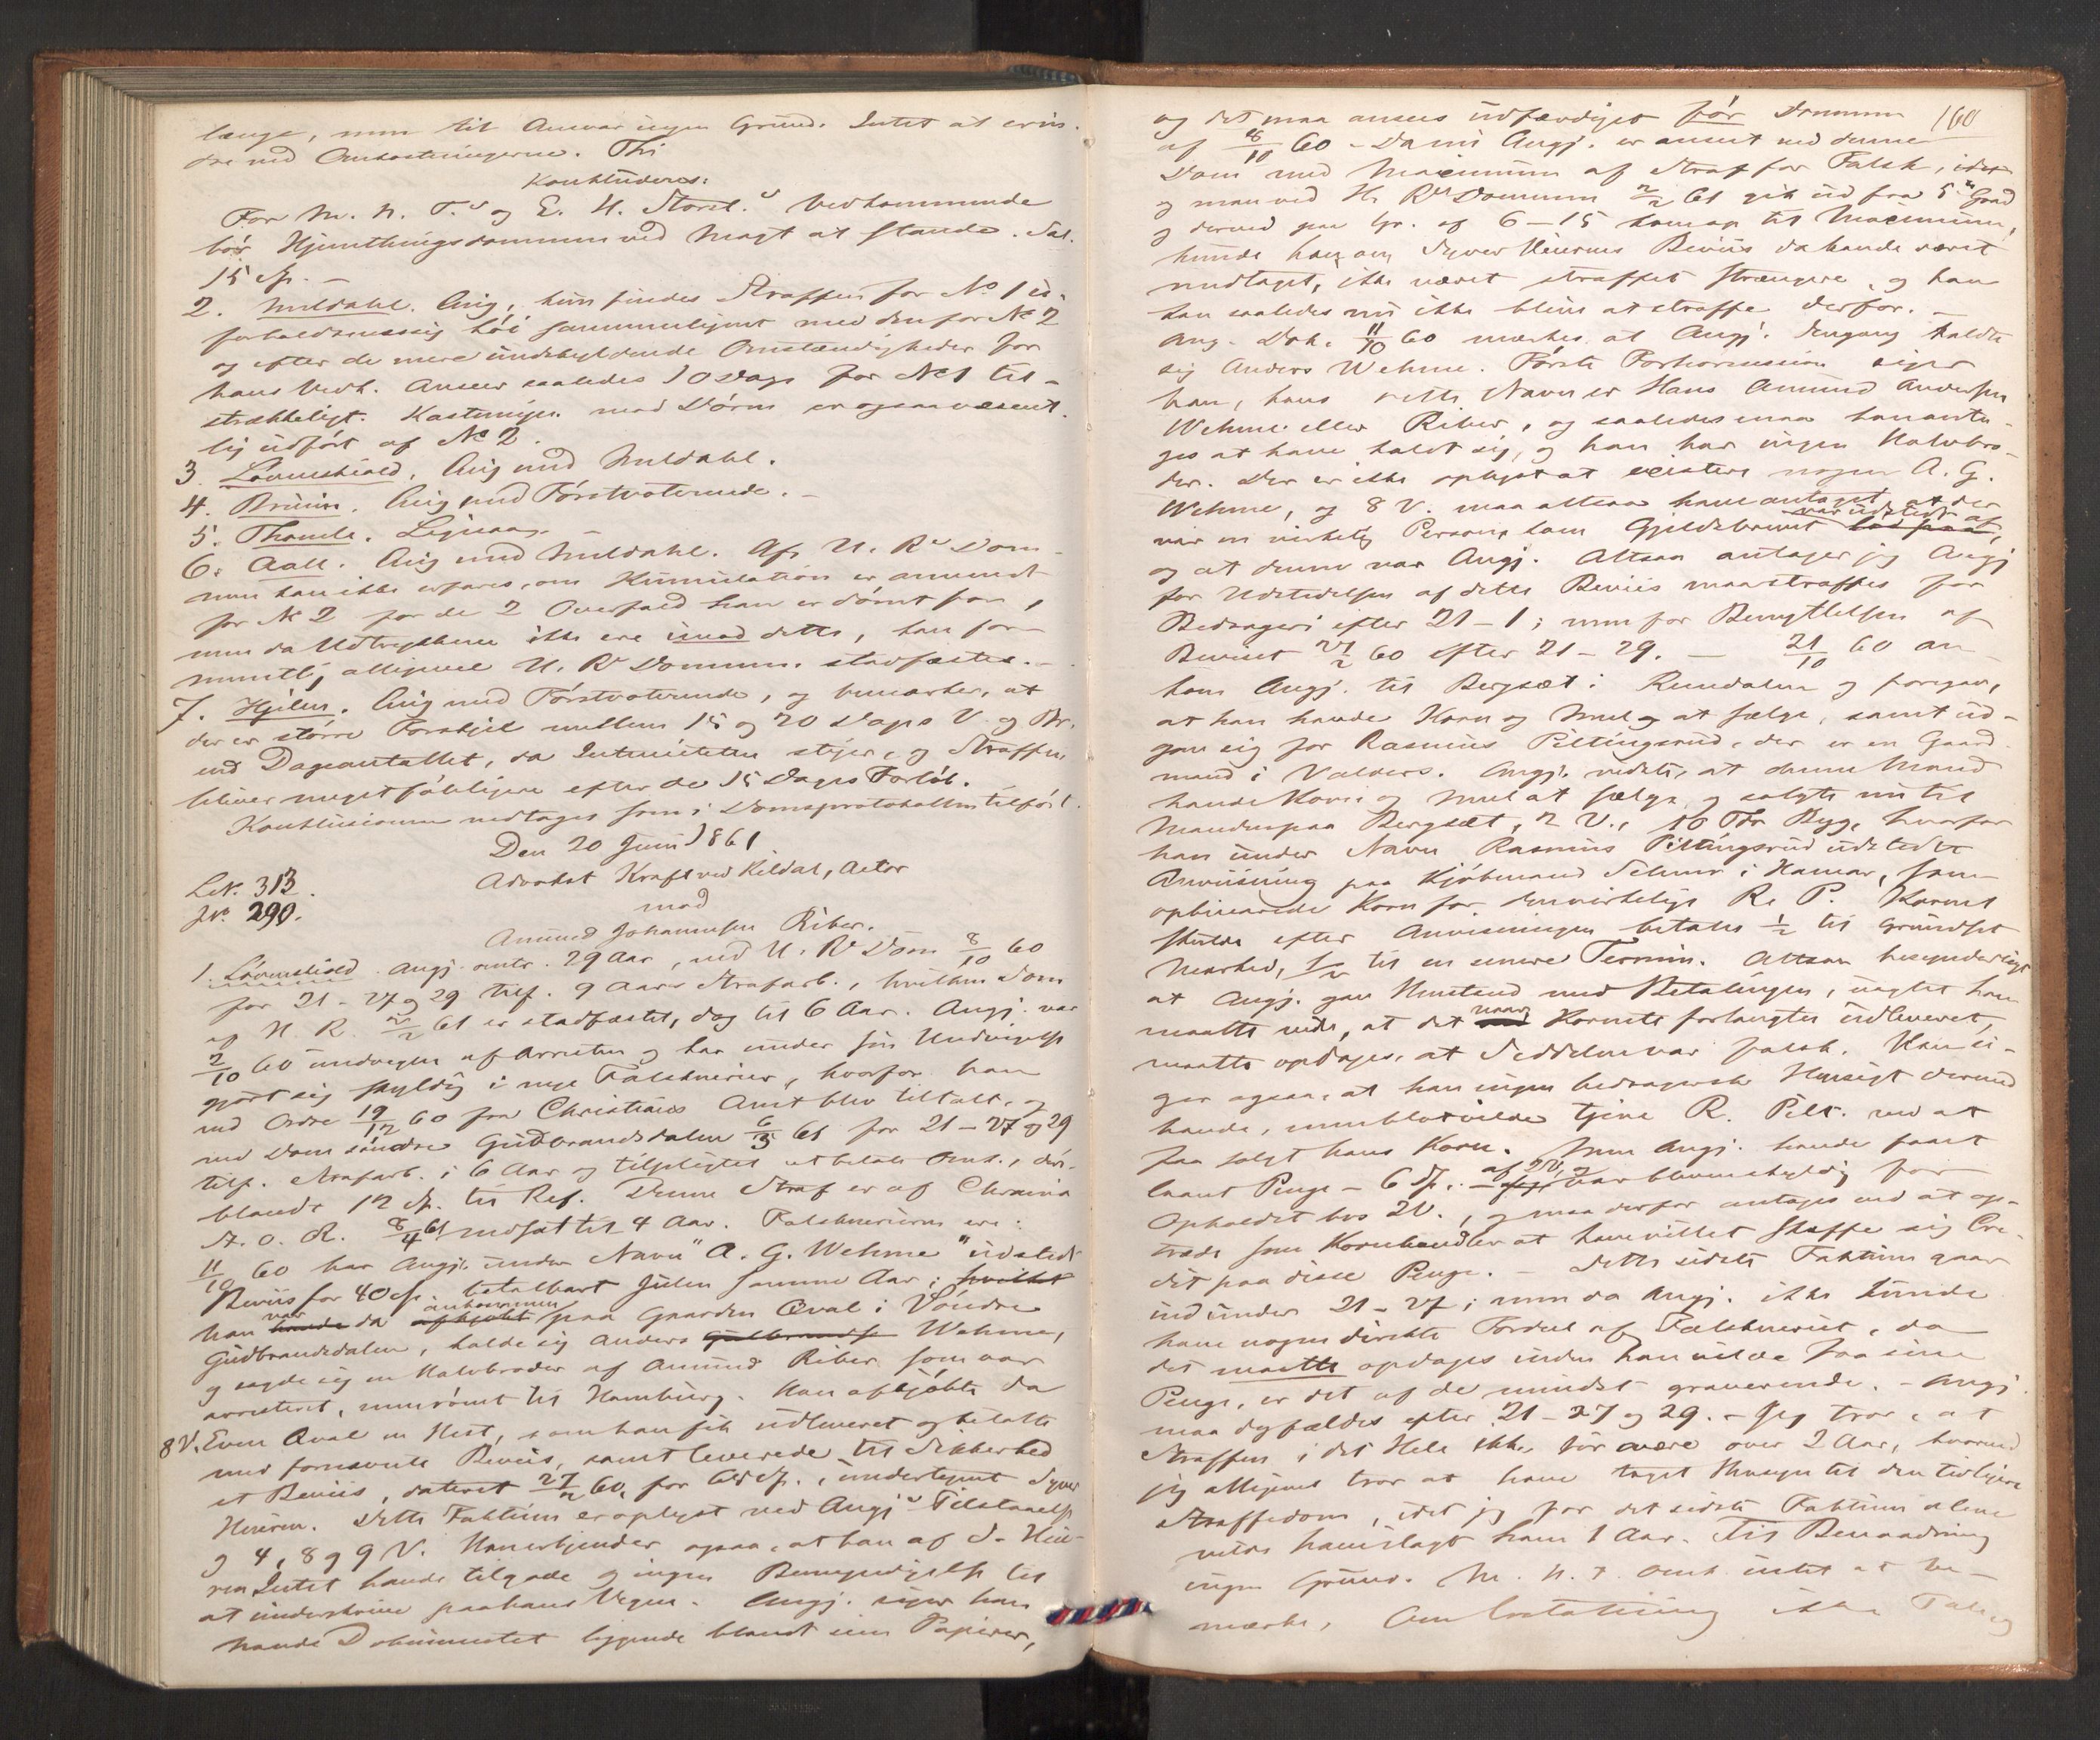 længe, men til Ansvar ingen Grund. Intet at erin-
dre ved Omkostningerne. Thi
Konkluderes:
For M. N. T.s og E. H. Storel.s Vedkommende
bør Hjemthingsdommen ved Magt at stande. Sal.
15 Sp. –
2. Muldahl. Enig, kun findes Straffen for No 1 u-
forholdsmæssig høi sammenlignet med den for No 2
og efter de mere undskyldende Omstændigheder for
hans Vedk. Anseer saaledes 10 Dage for No 1 til-
strækkeligt. Kastningen mod Døren er ogsaa væsent-
lig udført af No 2.
3. Løvenskiold. Enig med Muldahl.
4. Bruun. Enig med Førstvoterende. –
5. Thomle. Ligesaa. –
6. Aall. Enig med Muldahl. Af U. Rs Dom-
men kan ikke erfares, om Kumulation er anvendt
for No 2 for de 2 Overfald han er dømt for,
men da Udtrykkene ikke ere imod dette, kan for-
mentl. alligevel U. Rs Dommen stadfæstes. –
7. Hjelm. Enig med Førstvoterende, og bemærker, at
der er større Forskjel mellem 15 og 20 Dage V. og Br.
end Dageantallet, da Intensiteten stiger, og Straffen
bliver meget føleligere efter de 15 Dages Forløb.
Konklusionen vedtages som i Domsprotokollen tilført.
Den 20 Juni 1861
Advokat Kraft ved Kildal, Actor
mod
Amund Johannesen Riber.
L.N. 313.
J.N. 290.
1. Løvenskiold. Angj. omtr. 29 Aar, ved U. Rs Dom 8/10 60
for 21-27 og 29 tilf. 9 Aars Strafarb., hvilken Dom
af H. R. 2/2 61 er stadfæstet, dog til 6 Aar. Angj. var
2/10 60 undvegen af Arresten og har under sin Undvigelse
gjort sig skyldig i nye Falsknerier, hvorfor han
ved Ordre 19/12 60 fra Christians Amt blev tiltalt, og
ved Dom søndre Gudbrandsdalen 6/3 61 for 21-27 og 29
tilf. Strafarb. i 6 Aar og tilpligtet at betale Omk., der-
blandt 12 Sp. til Ref. Denne Straf er af Chrania
St. O. R. 8/4 61 nedsat til 4 Aar. Falsknerierne ere:
11/10 60 har Angj. under Navn "A. G. Wehme" udstedt
Beviis for 40 Sp. betalbart Julen samme Aar; hvilket
han havde var da afkjøbt ankommen paa Gaarden Qval i Søndre
Gudbrandsdalen, kaldte sig Anders Gulbrands. Wehme,
og sagde sig en Halvbroder af Amund Riber som var
arresteret, men rømt til Hamburg. Han afkjøbte da
8 V. Even Qval en Hest, som han fik udleveret og betalte
med fornævnte Beviis, samt leverede til Sikkerhed
et Beviis, dateret 27/2 60, for 60 Sp., undertegnet Syver
Heieren. Dette Faktum er oplyst ved Angj.s Tilstaaelse
og 4, 8 og 9 V. Han erkjender ogsaa, at han af S. Hei-
ren Intet havde tilgode og ingen Bemyndigelse til
at underskrive paa hans Vegne. Angj. siger han
havde Dokumentet liggende blandt sine Papirer,
160
og det maa ansees udfærdiget før Dommen
af 8/10 60. – Da nu Angj. er anseet ved denne
Dom med Maximum af Straf for Falsk, idet
man ved H. Rs Dommen 2/2 61 gik ud fra 5te Grad
og derved paa Gr. af 6-15 kom op til Maximum,
kunde han, om Syver Heierens Beviis da havde været
medtaget, ikke været straffet strængere, og han
kan saaledes nu ikke blive at straffe derfor. –
Ang. Dok. 11/10 60 mærkes at Angj. dengang kaldte
sig Anders Wehme. Første Forhørssession siger
han, hans rette Navn er Hans Amund Andersen
Wehme eller Riber, og saaledes maa han anta-
ges at have kaldt sig, og han har ingen Halvbro-
der. Der er ikke oplyst at existere nogen A. G.
Wehme, og 8 V. maa altsaa have antaget, at der
var en virkelig Person, som Gjeldsbrevet lød paa var udstedt af,
og at denne var Angj. Altsaa antager jeg Angj
for Udstedelsen af dette Beviis maa straffes for
Bedrageri efter 21-1; men for Benyttelsen af
Beviset 27/2 60 efter 21-29. – 21/10 60 an-
kom Angj. til Bergsæt i Rendalen og foregav,
at han havde Korn og Meel at sælge, samt ud-
gav sig for Rasmus Piltingsrud, der er en Gaard-
mand i Valders. Angj. vidste, at denne Mand
havde Korn og Meel at sælge og solgte nu til
Manden paa Bergsæt, 2 V., 10 Tdr Byg, hvorfor
han under Navn Rasmus Piltingsrud udstedte
Anviisning paa Kjøbmand Selmer i Hamar, som
opbevarede Korn for den virkelige R. P. Kornet
skulde efter Anvisningen betales 1/2 til Grundset
Marked, 1/2 til en senere Termin. Altsaa besynderligt
at Angj. gav Henstand med Betalingen, uagtet han
maatte vide, at det naar Kornet forlangtes udleveret,
maatte opdages, at Seddelen var falsk. Han si-
ger ogsaa, at han ingen bedragersk Hensigt dermed
havde, men blot vilde tjene R. Pilt. ved at
faa solgt hans Korn. Men Angj. havde faaet
laant Penge – 6 Sp. – af 2 V., og var bleven skyldig for
Opholdet hos 2 V., og maa derfor antages ved at op-
træde som Kornhandler at have villet skaffe sig Cre-
dit paa disse Penge. – Dette sidste Faktum gaar
ind under 21-27; men da Angj. ikke kunde
have nogen direkte Fordeel af Falskneriet, da
det maatte opdages inden han vilde faa sine
Penge, er det af de mindst graverende. – Angj
maa dog fældes efter 21-27 og 29. – Jeg tror, at
Straffen i det Hele ikke bør være over 2 Aar, hvorved
jeg alligevel tror at have taget Hensyn til den tidligere
Straffedom, idet jeg for det sidste Faktum alene
vilde have ilagt ham 1 Aar. Til Benaadning
ingen Grund. M. H. t. Omk. intet at be-
mærke. Om Erstatning ikke Tale,